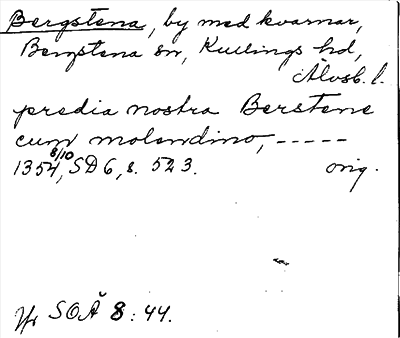 Bergstena, by med kvarnar,
Bergstena sn, Kullings hd,
Älvsb. l.
predia nostra Berstene
cum molendino, -----
8/10
1354, SD 6, s. 523. orig.
Jfr SOÄ 8:44.